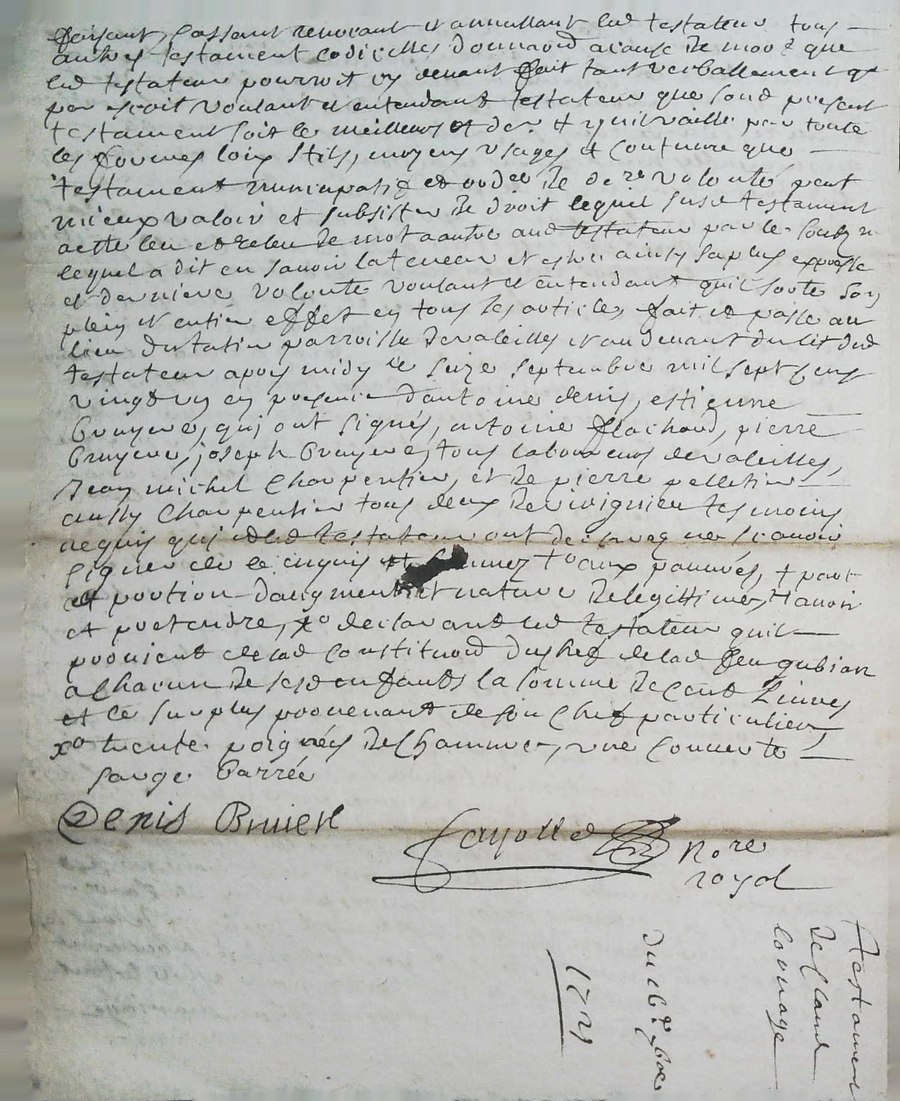 faisant, cassant revocant et annullant led testateur tous
autres testament codicilles donnaõn a cause de mort que
led testateur pourroit cy devant fait tant verballement q
par escrit voulant et entendant testateur que son present
testament soit le meilleur et der et quil vaille par toute
les formes loix stils, moyens usages et coutume que
testament nuncupatif et ordre de dere volonté peut
mieux valoir et subsister de droit lequel susd testament
a ette leu et releu de mot a autre aud testateur par le soubz ne
lequel a dit en savoir la teneur et estre ainsy sa plus expresse
et derniere volonté voulant et entendant quil sorte son
plein et entier effet en tous les articles, fait et passé au
lieu parroisse de valeilles et au devant du lit dud
testateur apres midy le seize septembre mil sept cens
vingt un en presence d'antoine denis, estienne
bruyere, qui ont signés, antoine flachard, pierre
bruyere, joseph bruyere, tous laboureurs de valeilles,
Jean michel charpentier, et de pierre pelletier
aussy charpentier tous deux de viricignieu tesmoins
requis qui et led testateur ont declaré ne scavoir
signer de ce enquis et aux pauvres, + part
et portion d'augment et nature de legittime, + avoir
et pretendre, xo declarant led testateur quil
provient de lad constitution du chef de lad feu gubian
a chacun de sesd enfants la somme de cent livres
et le surplus provenant de son chef particulier
xo trente poignés de chanvre, une couverte
sarge barrée
Denis Bruiere
Nore
royal
Testament
de Claude
lornage
du 16e 7bre
1721